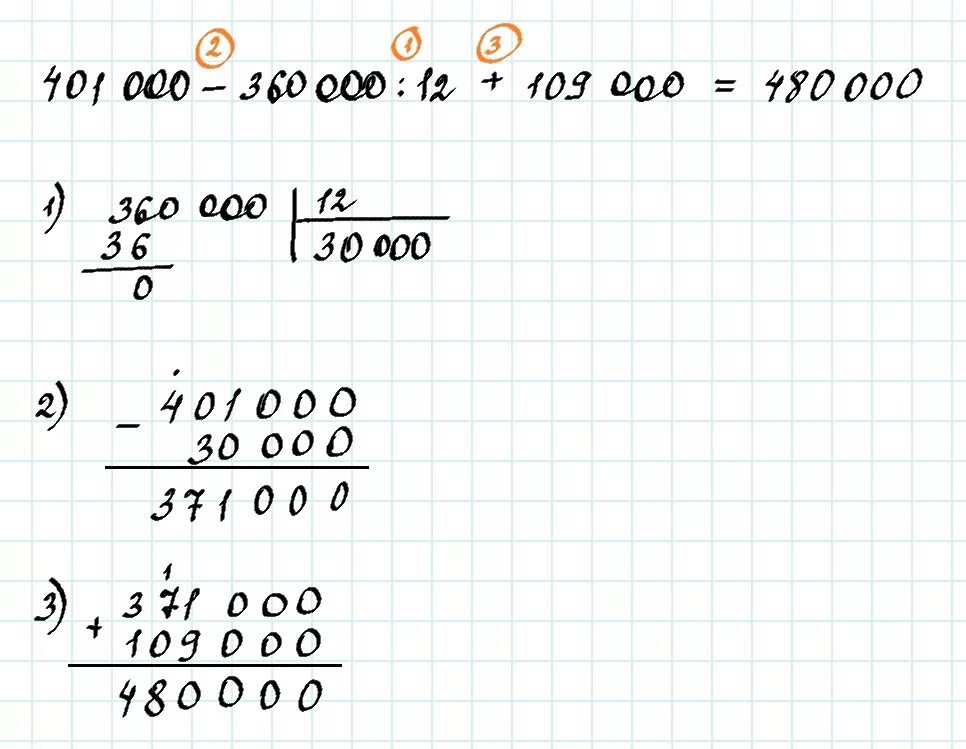 2 1 3
401 000 – 360 000 : 12 + 109 000 = 480 000
1) 360 000 | 12
36 30 000
0
2) – 401 000
30 000
371 000
1
3) + 371 000
109 000
480000